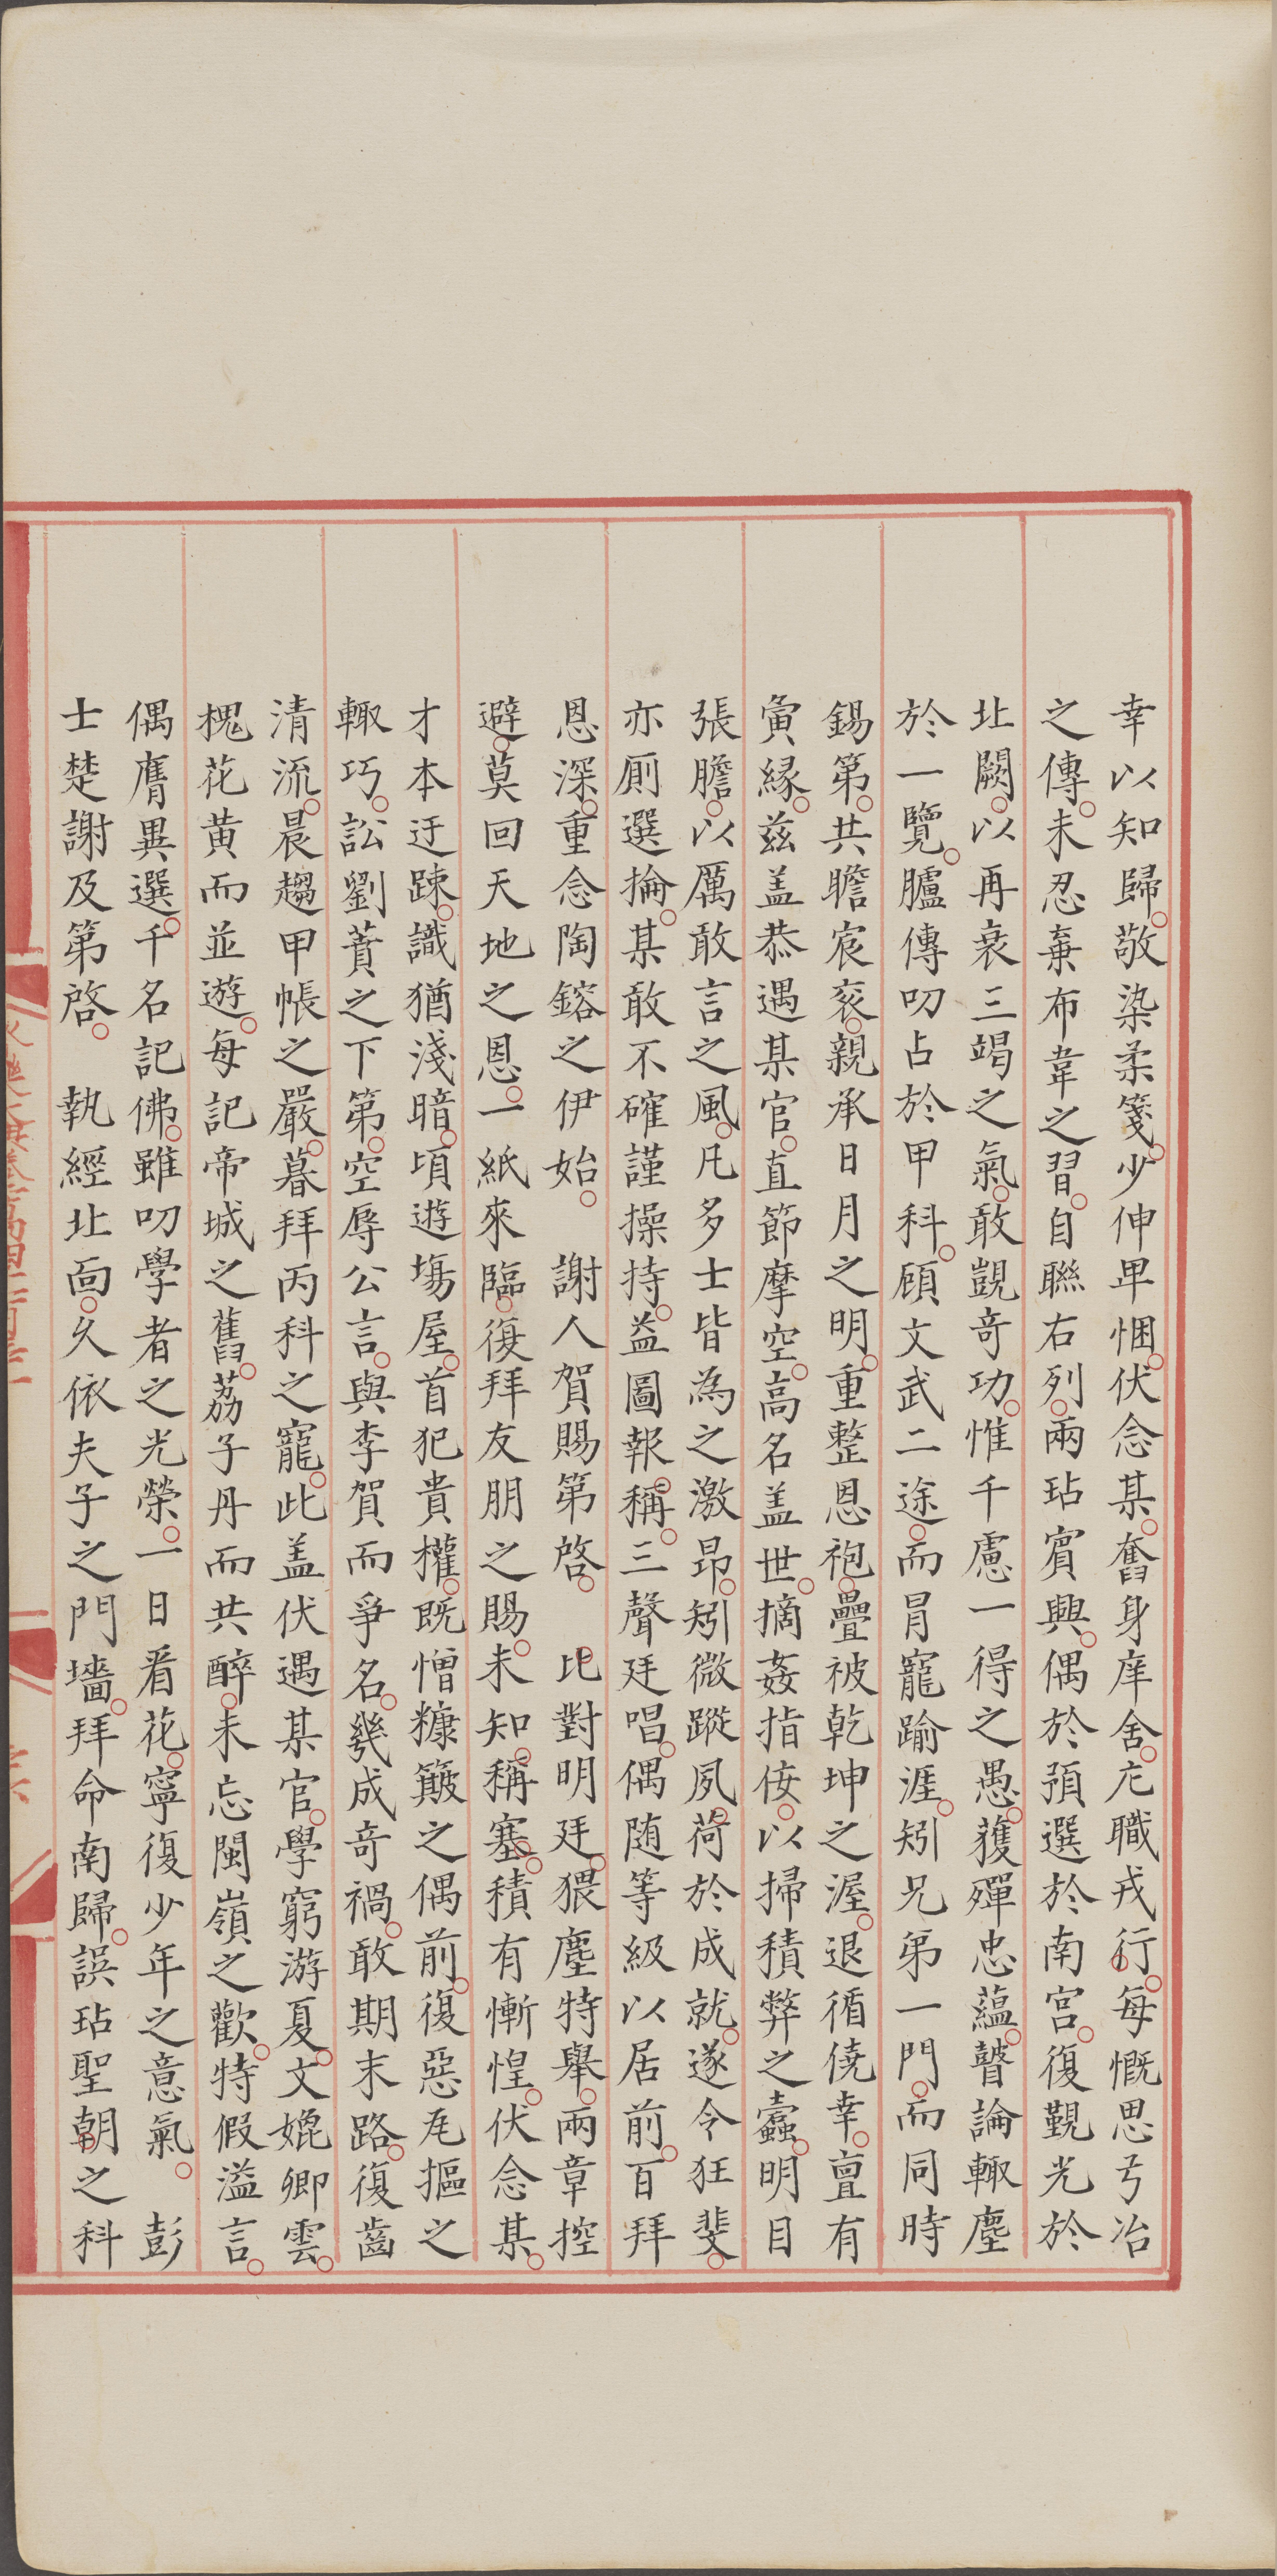 幸以知歸敬染柔箋少伸卑悃伏念某奮身庠舍庀職戎行每慨思弓冶
之傳未忍棄布韋之習自聯右列兩玷賓興偶於預選於南宮復覲光於
北闕以再衰三竭之氣敢覬奇功惟千慮一得之愚獲殫忠蘊瞽論輒塵
於一覽臚傳叨占於甲科顧文武二途而冒寵踰涯矧兄弟一門而同時
錫第共瞻宸衮親承日月之明重整恩袍疊被乾坤之渥退循僥幸亶有
寅緣兹盖恭遇某官直節摩空高名盖世摘姦指佞以掃積弊之蠹明目
張膽以厲敢言之風凡多士皆為之激昂矧微蹤夙荷於成就遂令狂斐
亦厠選掄某敢不確謹操持益圖報稱三聲廷唱偶随等級以居前百拜
恩深重念陶鎔之伊始　謝人賀賜第啓　比對明廷猥塵特舉兩章控
避莫回天地之恩一紙來臨復拜友朋之賜未知稱塞積有慚惶伏念某
才本迂踈識猶淺暗頃遊塲屋首犯貴權既憎糠簸之偶前復惡㡭摳之
輒巧訟劉蕡之下第空辱公言與李賀而爭名幾成奇禍敢期末路復齒
清流晨趨甲帳之嚴暮拜丙科之寵此盖伏遇某官學窮游夏文媲卿雲
槐花黄而並遊每記帝城之舊荔子丹而共醉未忘閩嶺之歡特假溢言
偶膺異選千名記佛雖叨學者之光榮一日看花寧復少年之意氣　彭
士楚謝及第啓　執經北面久依夫子之門墻拜命南歸誤玷聖朝之科